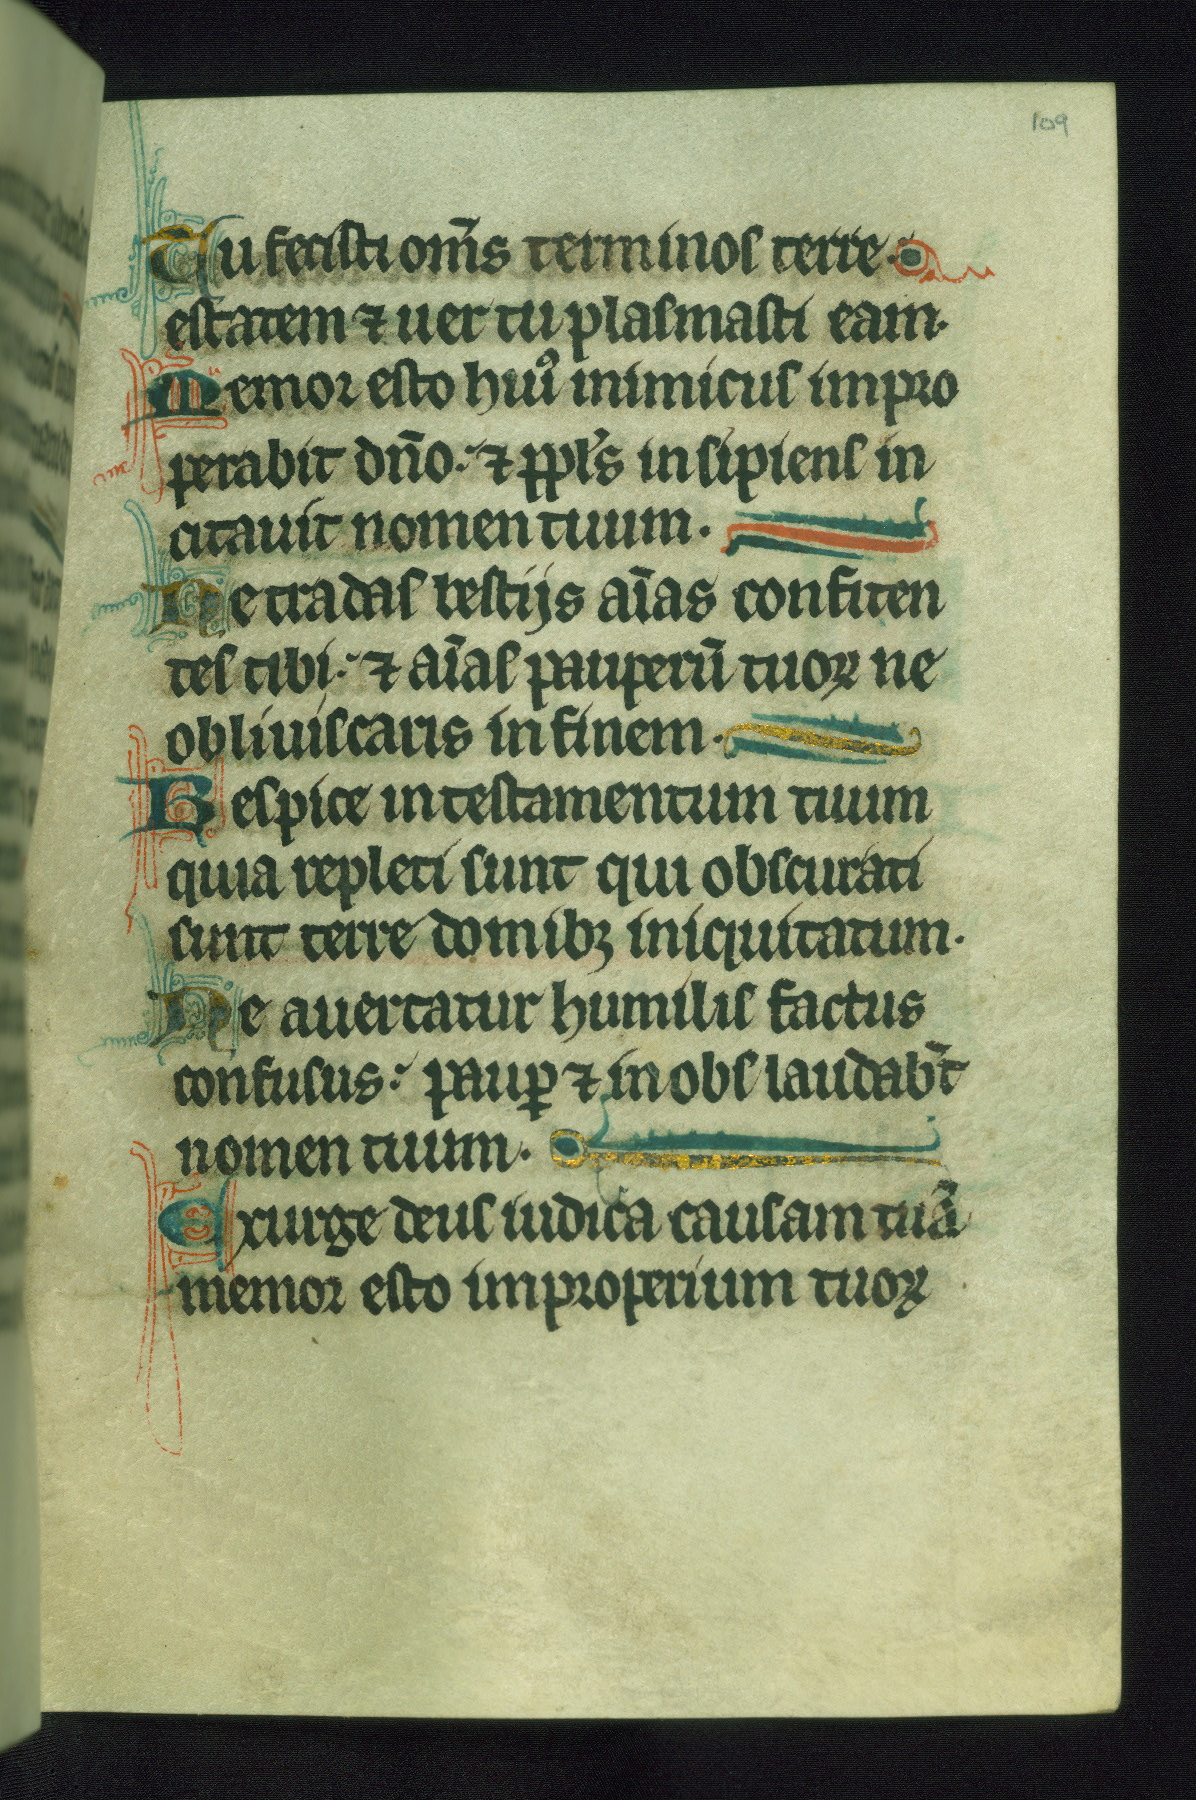 109
Tu fecisti om̄s terminos terre.
estatem ⁊ uer tu plasmasti eam.
Memor esto huiꝰ inimicus impro
perabit dn̄o. ⁊ ppl̄s insipiens in
citauit nomen tuum.
Ne tradas bestijs aīas confiten
tes tibi. ⁊ aīas pauperū tuoꝝ ne
obliuiscaris in finem.
Respice in testamentum tuum
quia repleti sunt qui obscurati
sunt terre domibꝫ iniquitatum.
Ne auertatur humilis factus
confusus. paup̱ ⁊ inobs laudab̄t
nomen tuum.
Exurge deus iudica causam tuā
memor esto improperium tuoꝝ